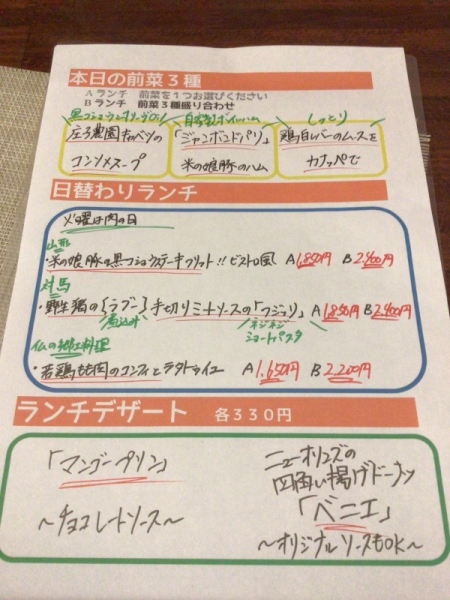 本日の前菜3種
Aランチ 前菜を1つお選びください
Bランチ 前菜3種盛り合わせ
黒コショウ オリーブ
自家製ボイルハム
しっとり
庄子農園キャベツの
コンソメスープ
「ジャンボンドパリ」
米の娘豚のハム
鶏白レバーのムースを
カナッペで
日替わりランチ
火曜は肉の日
山形
・米の娘豚の黒コショウステーキフリット!! ビストロ風 A1,850円 B2,400円
対馬
・野生猪の{ラグー}手切りミートソースの「フジッリ」 A1,850円 B2,400円
煮込み
ネジネジ
ショートパスタ
仏の郷土料理
・若鶏もも肉のコンフィとラタトゥイユ A1,650円 B2,200円
ランチデザート 各330円
「マンゴープリン」
～チョコレートソース～
ニューオリンズの
四角い揚げドーナツ
「ベニエ」
～オリジナルソースもOK～